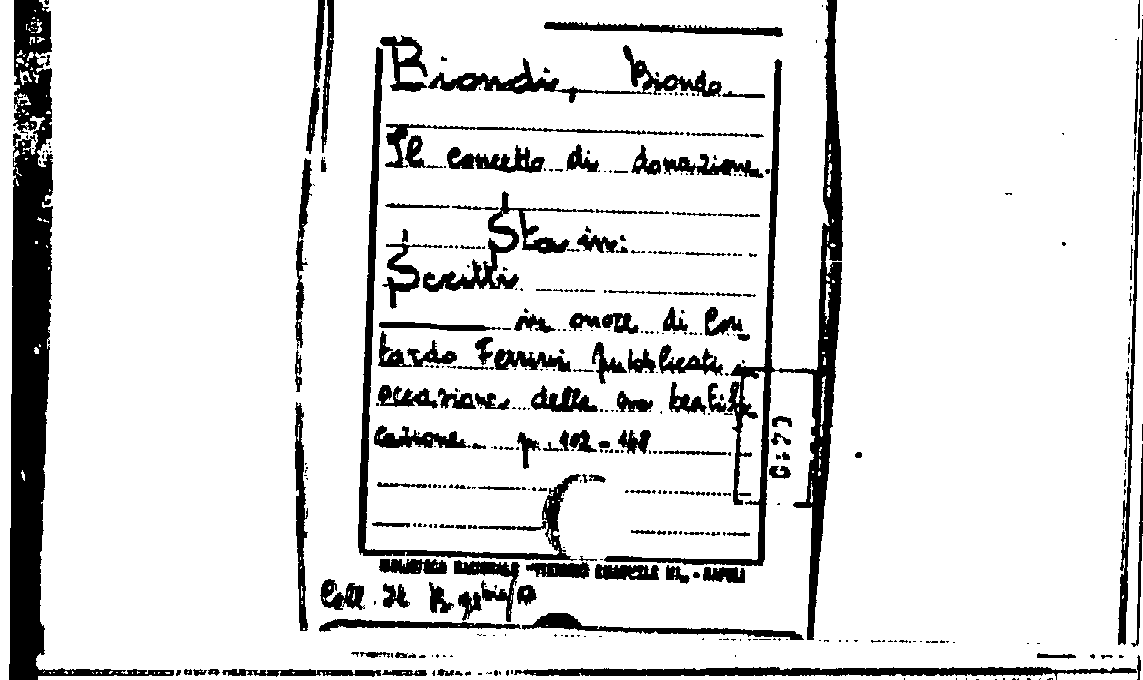 Biondi, Biondo.
Il concetto di donazione.
Sta in:
Scritti
in onore di Con
tardo Ferrini pubblicati in
occasione della sua beatifi
cazione. p. 102-148
BIBLIOTECA NAZIONALE "VITTORIO EMANUELE III" - NAPOLI
Coll. It